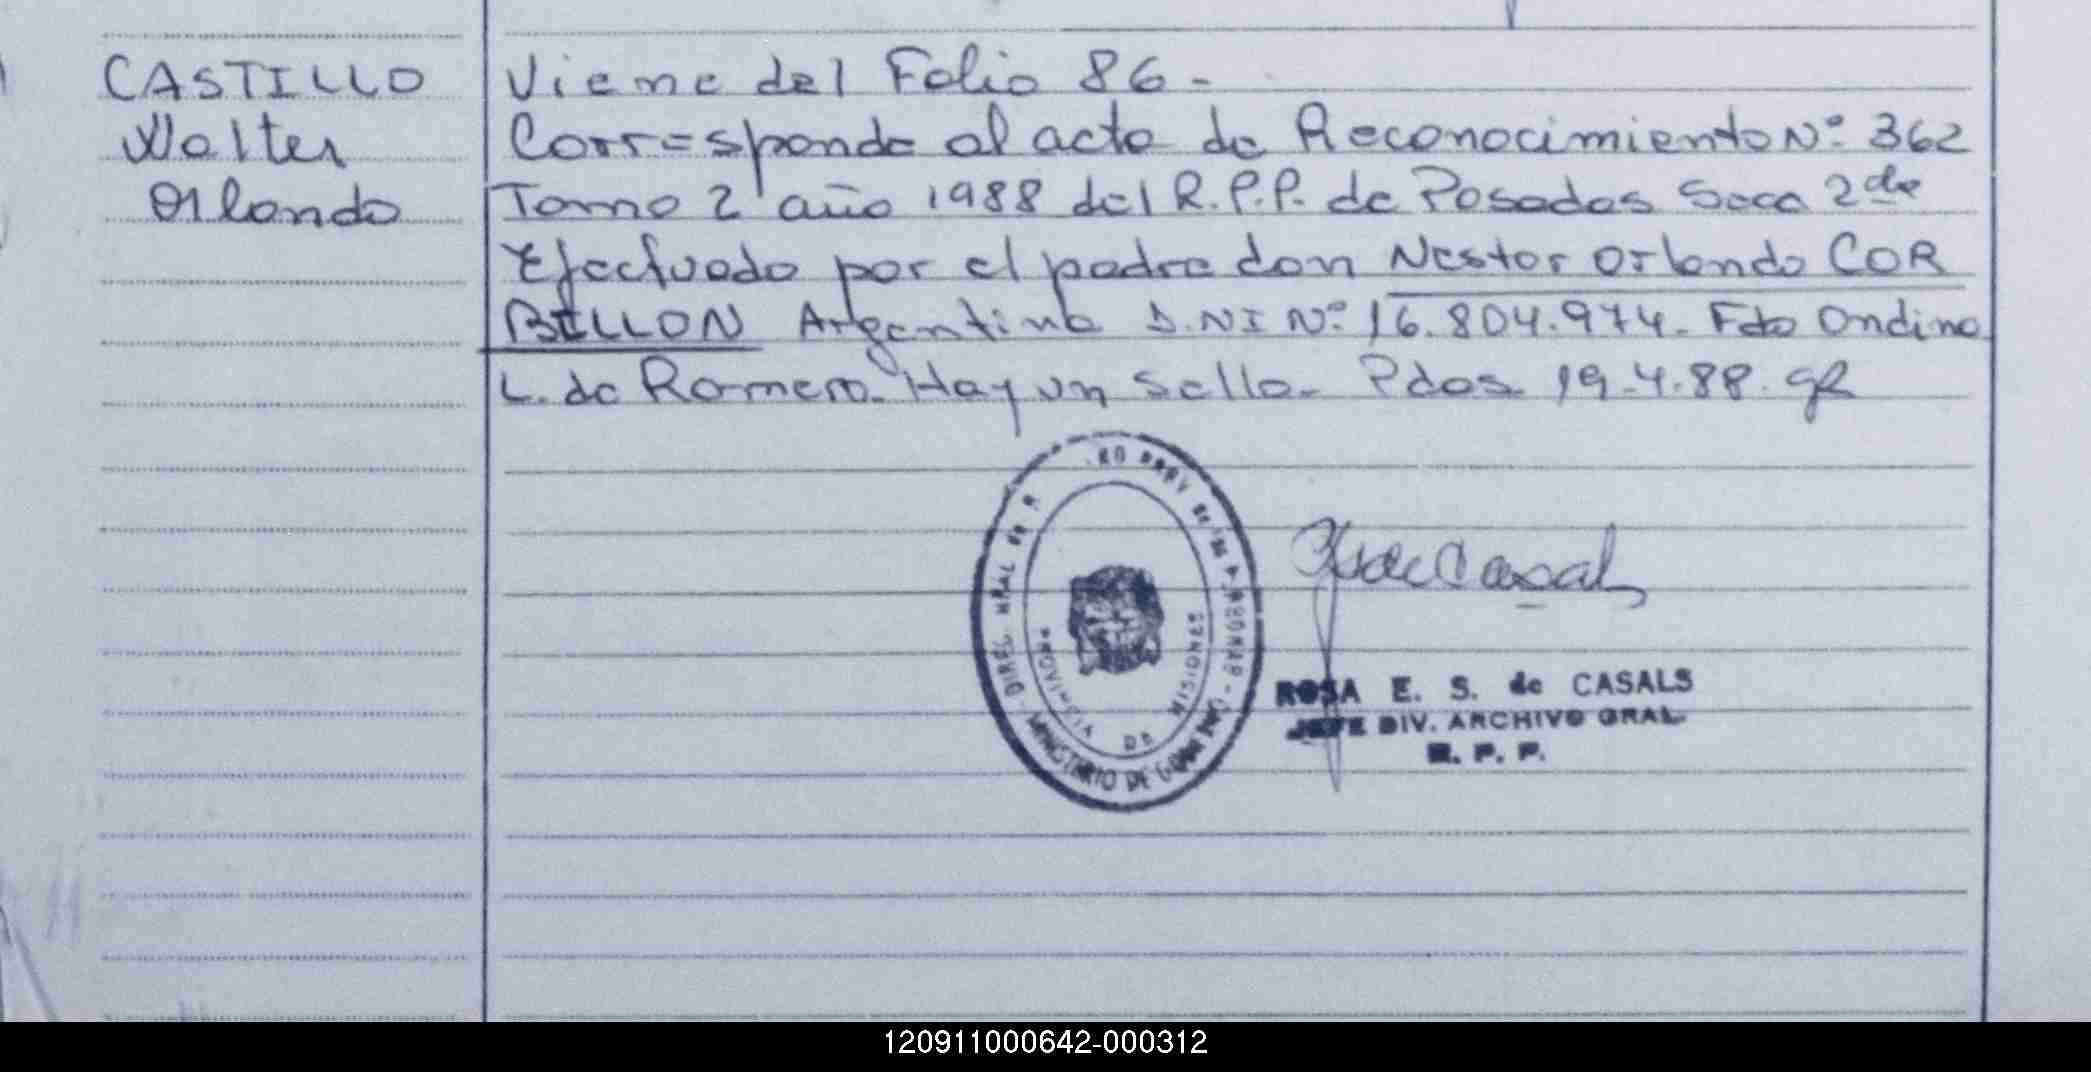 CASTILLO
Walter
Orlando
Viene del Folio 86-
Corresponde al acta de Reconocimiento Nº 362
Tomo 2 año 1988 del R.P.P. de Posadas Secc 2da
Efectuado por el padre don Nestor Orlando COR
BILLON Argentino D.NI Nº 16.804.974- Fdo Ondina
L. de Romero. Hay un sello- Pdas 19-4-88.
DIREC. GRAL de PROV de las PERSONAS
MINISTERIO DE
PROVINCIA DE MISIONES
ROSA E. S. de CASALS
JEFE DIV. ARCHIVO GRAL.
R. P. P.
120911000642-000312